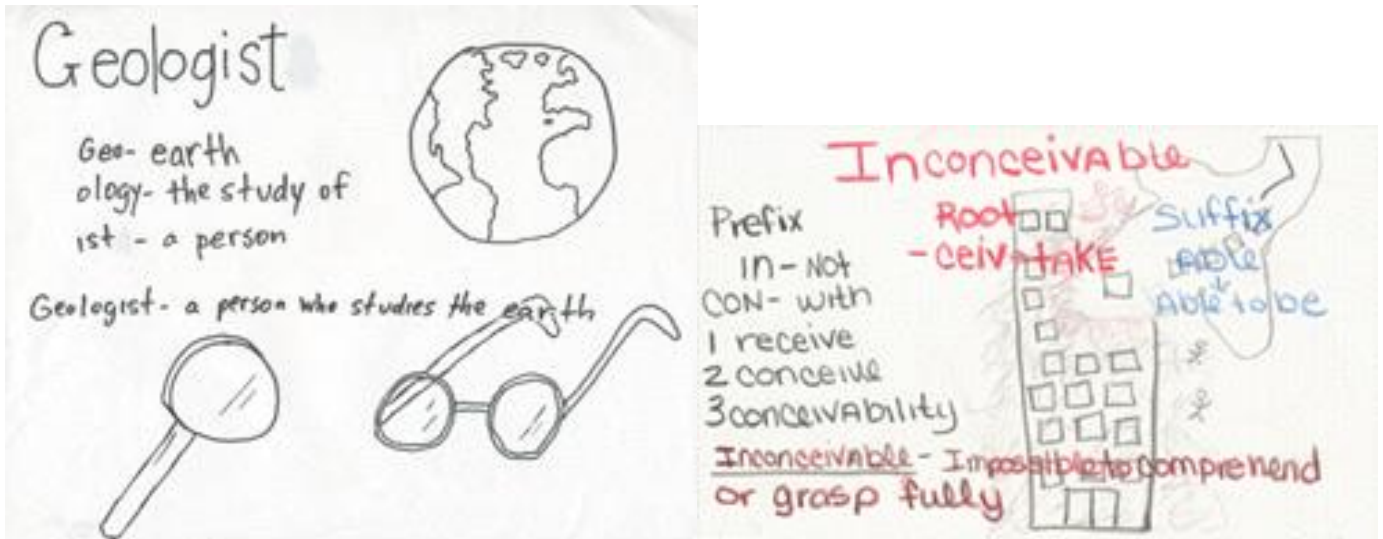 Geologist
Geo- earth
ology- the study of
ist - a person
Geologist- a person who studies the earth
Inconceivable
Prefix
in- Not
CON- with
1 receive
2 conceive
3 conceivability
Root
-ceiv-take
Suffix
Able
Able to be
Inconceivable - Impossible to comprehend
or grasp fully